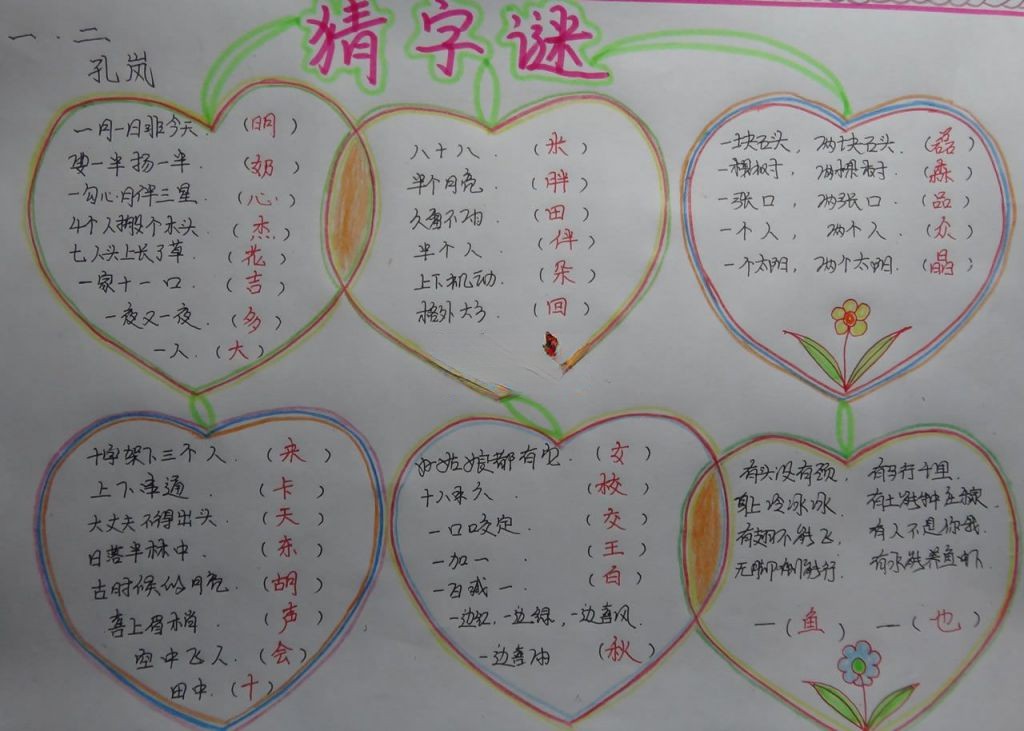 猜字谜
一.二
孔岚
一月一日非今天.（明）
要一半扔一半.（奶）
一勾心月伴三星.（心）
4个人搬个木头.（杰）
七人头上长了草.（花）
一家十一口.（吉）
一夜又一夜.（多）
一人.（大）
八十八.（米）
半个月亮.（胖）
久雨不 （田）
半个人.（伴）
上下机动.（朵）
格外大方.（回）
一块石头，两块石头.（磊）
一棵树，两棵树.（森）
一张口，两张口.（品）
一个人，两个人.（众）
一个太阳，两个太阳.（晶）
十字架下三个人.（来）
上下 通（卡）
大丈夫不得出头.（天）
日落半林中.（东）
古时候的月亮.（胡）
喜上眉梢（声）
空中飞人.（会）
田中.（十）
好姑娘都有它.（女）
十八 六.（校）
一口咬定.（交）
一加一.（王）
一百减一.（白）
一边红，一边绿，一边喜风.
一边喜雨（秋）
有头没有颈.
身上冷冰冰.
有翅不能飞，
无脚 能行.
一（鱼）
有马行千里.
有土能种庄稼.
有人不是你我.
有水能养鱼虾
一（也）